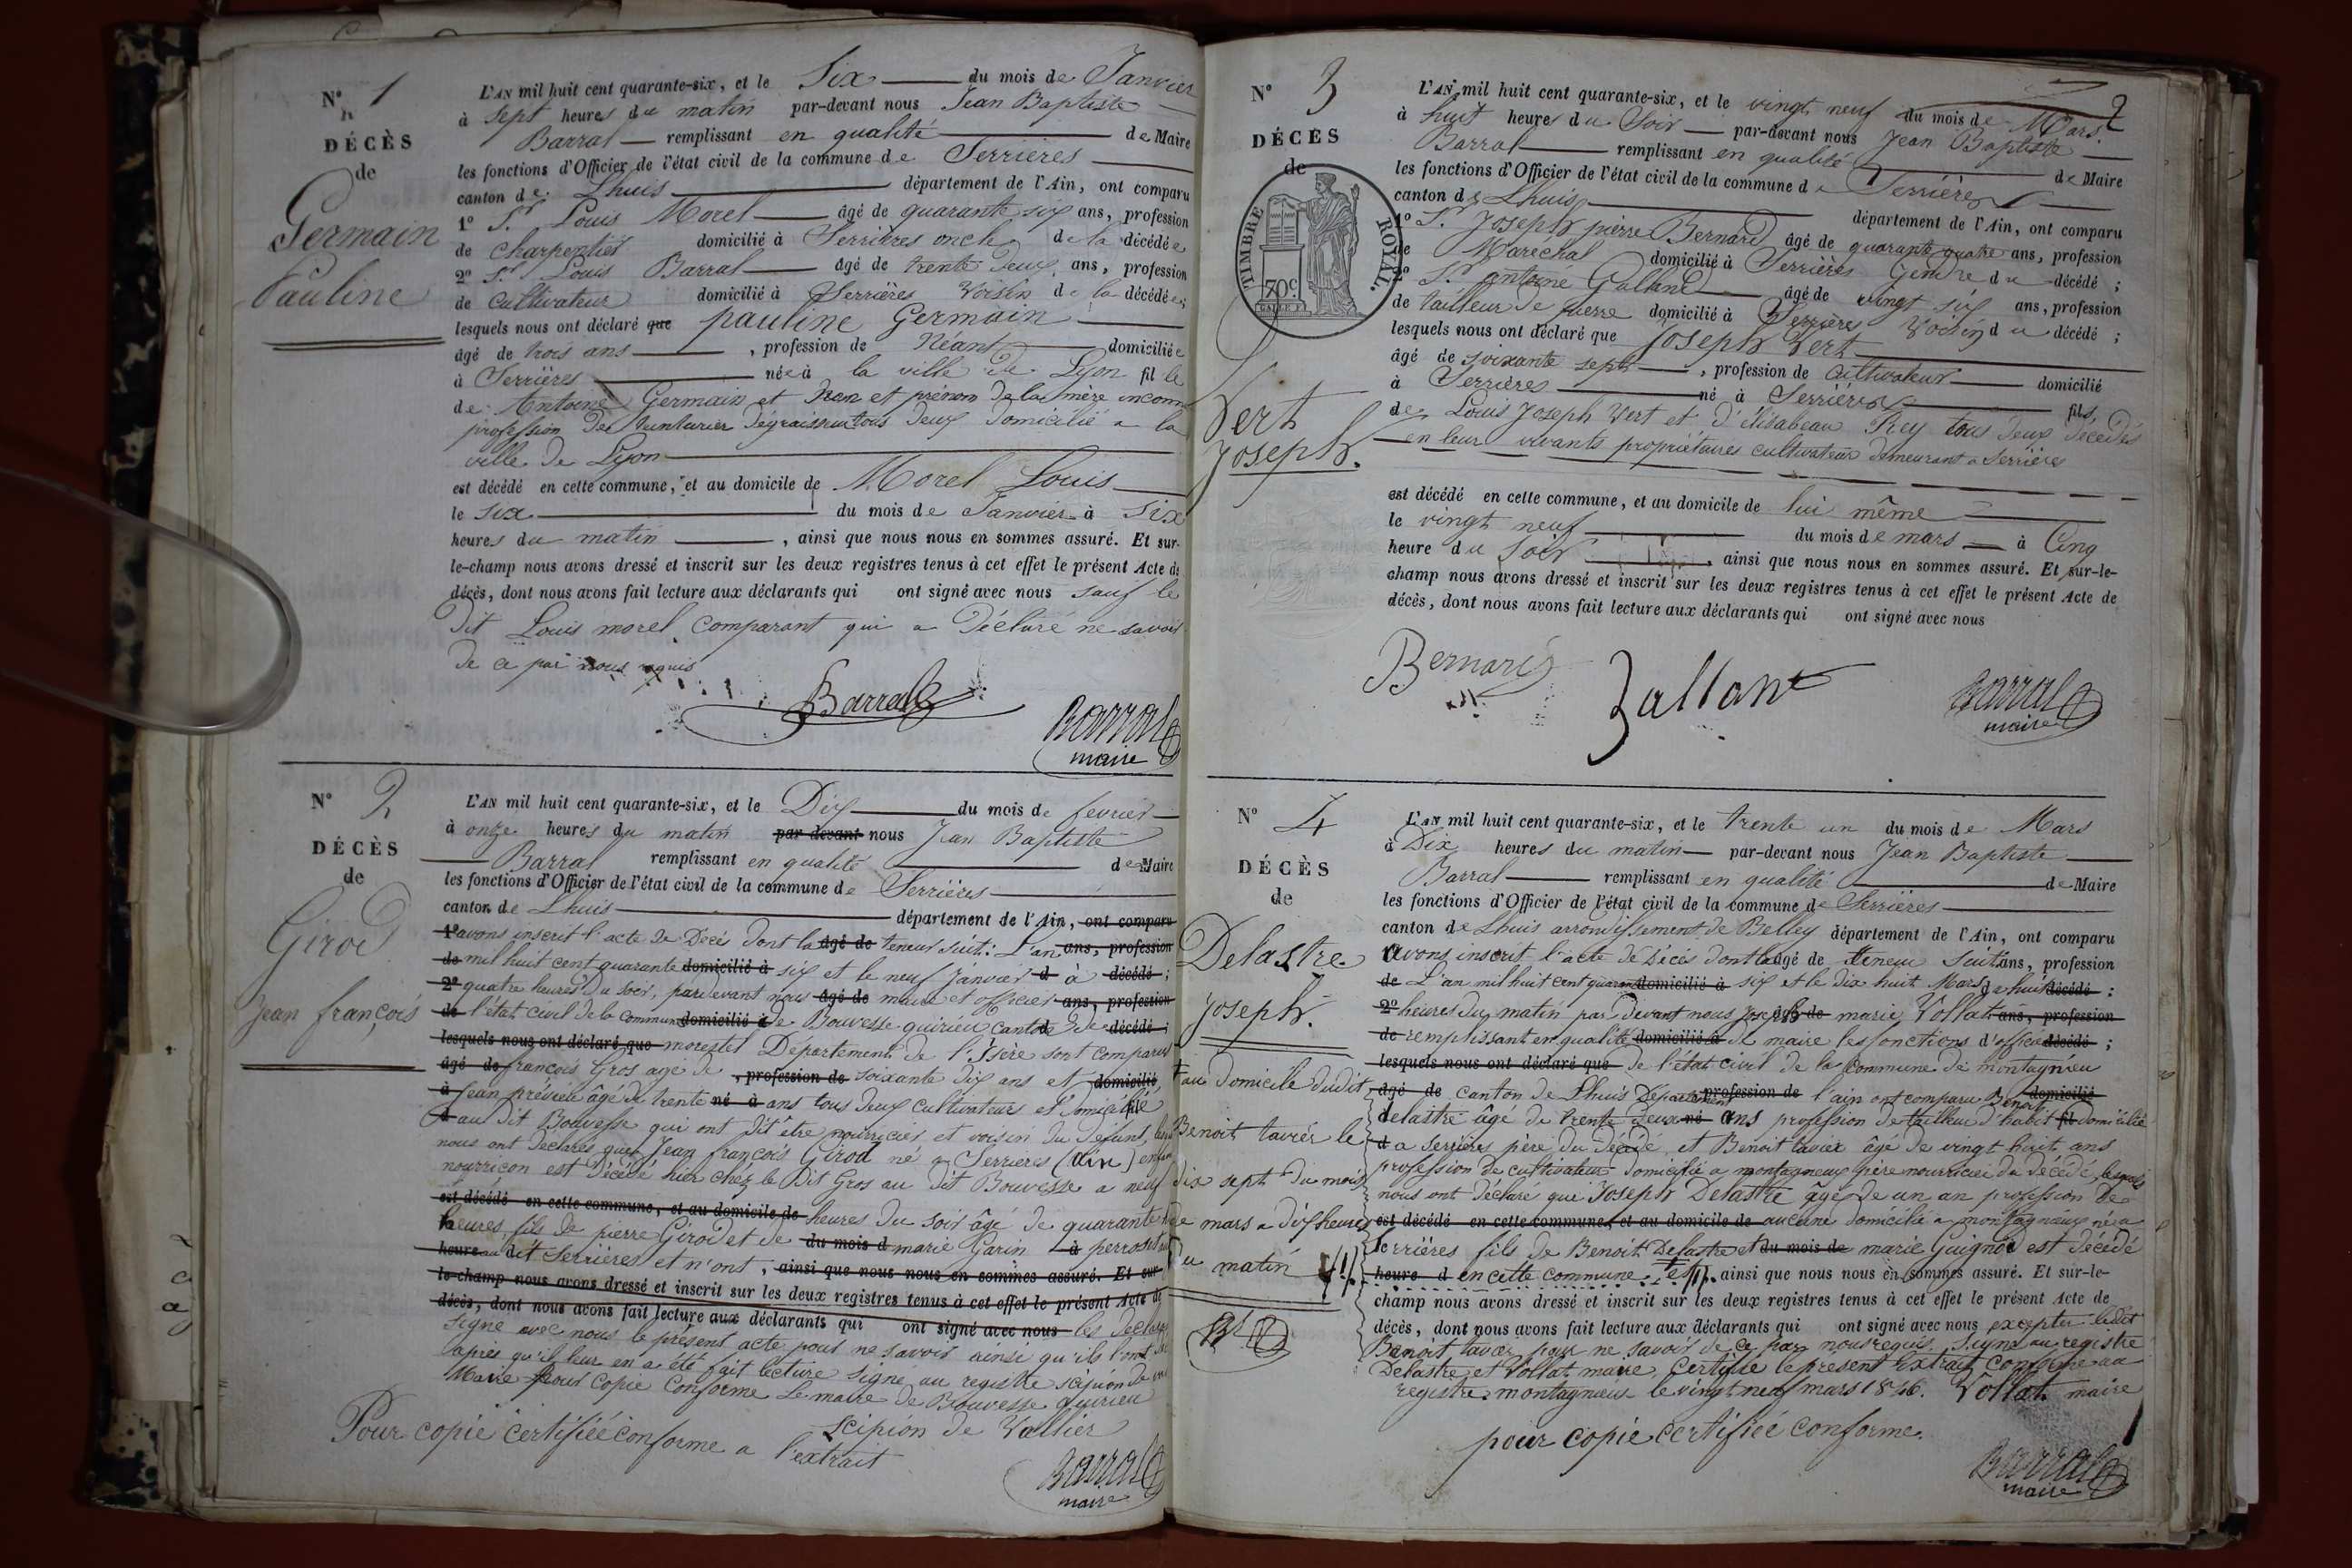 N° 1
DÉCÈS
de
Germain
Pauline
L'AN mil huit cent quarante-six, et le Six du mois de Janvier
à sept heures du matin par-devant nous Jean Baptiste
Barral remplissant en qualité de Maire
les fonctions d'Officier de l'état civil de la commune de Serrières
canton de Lhuis département de l'Ain, ont comparu
1° Sr Louis Morel âgé de quarante six ans, profession
de charpentier domicilié à Serrières oncle de la décédée
2° Sr Louis Barral âgé de trente deux ans, profession
de cultivateur domicilié à Serrières Voisin de la décédée;
lesquels nous ont déclaré que pauline Germain
âgé de trois ans, profession de Néant domiciliée
à Serrières née à la ville de Lyon fille
de Antoine Germain et Non et prénom de la mère inconnu
profession de teinturier dégraisseur tous deux domicilié a la
ville de Lyon
est décédé en cette commune, et au domicile de Morel Louis
le six du mois de Janvier à six
heures du matin, ainsi que nous nous en sommes assuré. Et sur-
le-champ nous avons dressé et inscrit sur les deux registres tenus à cet effet le présent Acte de
décès, dont nous avons fait lecture aux déclarants qui ont signé avec nous sauf le
Dit Louis morel comparant qui a déclaré ne savoir
de ce par nous requis
Barral
Barral
maire
N° 2
DÉCÈS
de
Girod
Jean françois
L'AN mil huit cent quarante-six, et le Dix du mois de fevrier
à onze heures du matin par devant nous Jean Baptiste
Barral remplissant en qualité de Maire
les fonctions d'Officier de l'état civil de la commune de Serrières
canton de Lhuis département de l'Ain, ont comparu
1° avons inscrit l'acte de Décès dont la âgé de teneur suit: L'an ans, profession
de mil huit cent quarante domicilié à six et le neuf Janvier d à décédé;
2° quatre heures du soir, pardevant nous âgé de maire et officier ans, profession
de l'état civil de la commune domicilié à de Bouvesse quirieu canton de décédé;
lesquels nous ont déclaré que morestel Département de l'Isère sont comparus
âgé de françois Gros age de, profession de soixante dix ans et domicilié
à Jean prévieu âgé de trente né à ans tous deux cultivateurs et domicilié fil
d au dit Bouvesse qui ont dit être nourricier et voisin du défunt,
nous ont déclarés que Jean françois Girod né a Serrières (ain) enfant
nourriçon est Décédé hier chéz le Dit Gros au dit Bouvesse a neuf
est décédé en cette commune, et au domicile de heures du soir âgé de quarante
heures fils de pierre Girod et de du mois d marie Garin à
heure au dit Serrières et n'ont, ainsi que nous nous en sommes assuré. Et sur-
le-champ nous avons dressé et inscrit sur les deux registres tenus à cet effet le présent Acte de
décès, dont nous avons fait lecture aux déclarants qui ont signé avec nous les
signe avec nous le présent acte pour ne savoir ainsi qu'ils l'ont
après qu'il leur en a été fait lecture signe au registre scipion de
Maire pour copie conforme Le maire de Bouvesse quirieu
scipion de Vallier
Pour copie certifiée conforme a l'extrait
Barral
maire
2
N° 3
DÉCÈS
de
TIMBRE ROYAL.
70c
Vert
Joseph.
L'AN mil huit cent quarante-six, et le vingt neuf du mois de Mars
à huit heures du Soir par-devant nous Jean Baptiste
Barral remplissant en qualité de Maire
les fonctions d'Officier de l'état civil de la commune de Serrières
canton de Lhuis département de l'Ain, ont comparu
1° Sr Joseph pierre Bernard âgé de quarante quatre ans, profession
de Maréchal domicilié à Serrières Gendre du décédé;
2° Sr antoine Galland âgé de vingt six ans, profession
de tailleur de pierre domicilié à Serrières Voisin du décédé;
lesquels nous ont déclaré que Joseph Vert
âgé de soixante sept, profession de Cultivateur domicilié
à Serrières né à Serrières fils
de Louis Joseph Vert et d'élisabeau Rey tous deux décédés
en leur vivants propriétaires cultivateurs demeurant a Serrières
est décédé en cette commune, et au domicile de lui même
le vingt neuf du mois de mars à Cinq
heure du soir, ainsi que nous nous en sommes assuré. Et sur-le-
champ nous avons dressé et inscrit sur les deux registres tenus à cet effet le présent Acte de
décès, dont nous avons fait lecture aux déclarants qui ont signé avec nous
Bernard
Gallant
Barral
maire
N° 4
DÉCÈS
de
Delastre
Joseph.
au domicile dudit
Benoit tavier le
dix sept du mois
de mars a dix heures
du matin
L'AN mil huit cent quarante-six, et le trente un du mois de Mars
à Dix heures du matin par-devant nous Jean Baptiste
Barral remplissant en qualité de Maire
les fonctions d'Officier de l'état civil de la commune de Serrières
canton de Lhuis arrondissement de Belley département de l'Ain, ont comparu
avons inscrit l'acte de Décès dont la âgé de teneur suit: ans, profession
de L'an mil huit cent quarante domicilié à six et le dix huit Mars a huit décédé;
2° heures du matin par Devant nous Joseph âgé de marie Vollat ans, profession
de remplissant en qualité domicilié à de maire les fonctions d'officier décédé;
lesquels nous ont déclaré que de l'état civil de la commune de montagnieu
âgé de canton de Lhuis Département profession de l'ain ont comparu Benoit domicilié
delastre âgé de trente deux né ans profession de tailleur d'habit fil domicilié
d a serrières père du Décédé et Benoit tavier âgé de vingt huit ans
profession de cultivateur domicilié a montagneux père nourricier du décédé, lesquels
nous ont déclaré que Joseph Delastre âgé de un an profession de
est décédé en cette commune, et au domicile de aucune domicilié a montagnieux né a
serrières fils de Benoit Delastre et du mois de marie Guignod est décédé
heure d en cette commune, ainsi que nous nous en sommes assuré. Et sur-le-
champ nous avons dressé et inscrit sur les deux registres tenus à cet effet le présent Acte de
décès, dont nous avons fait lecture aux déclarants qui ont signé avec nous excepter ledit
Benoit tavier pour ne savoir de ce par nous requis. Signé au registre
Delastre et Vollat maire, Certifie le present Extrait conforme au
registre. montagnieux le vingt neuf mars 1846. Vollat maire
pour copie certifiée conforme.
Barral
maire